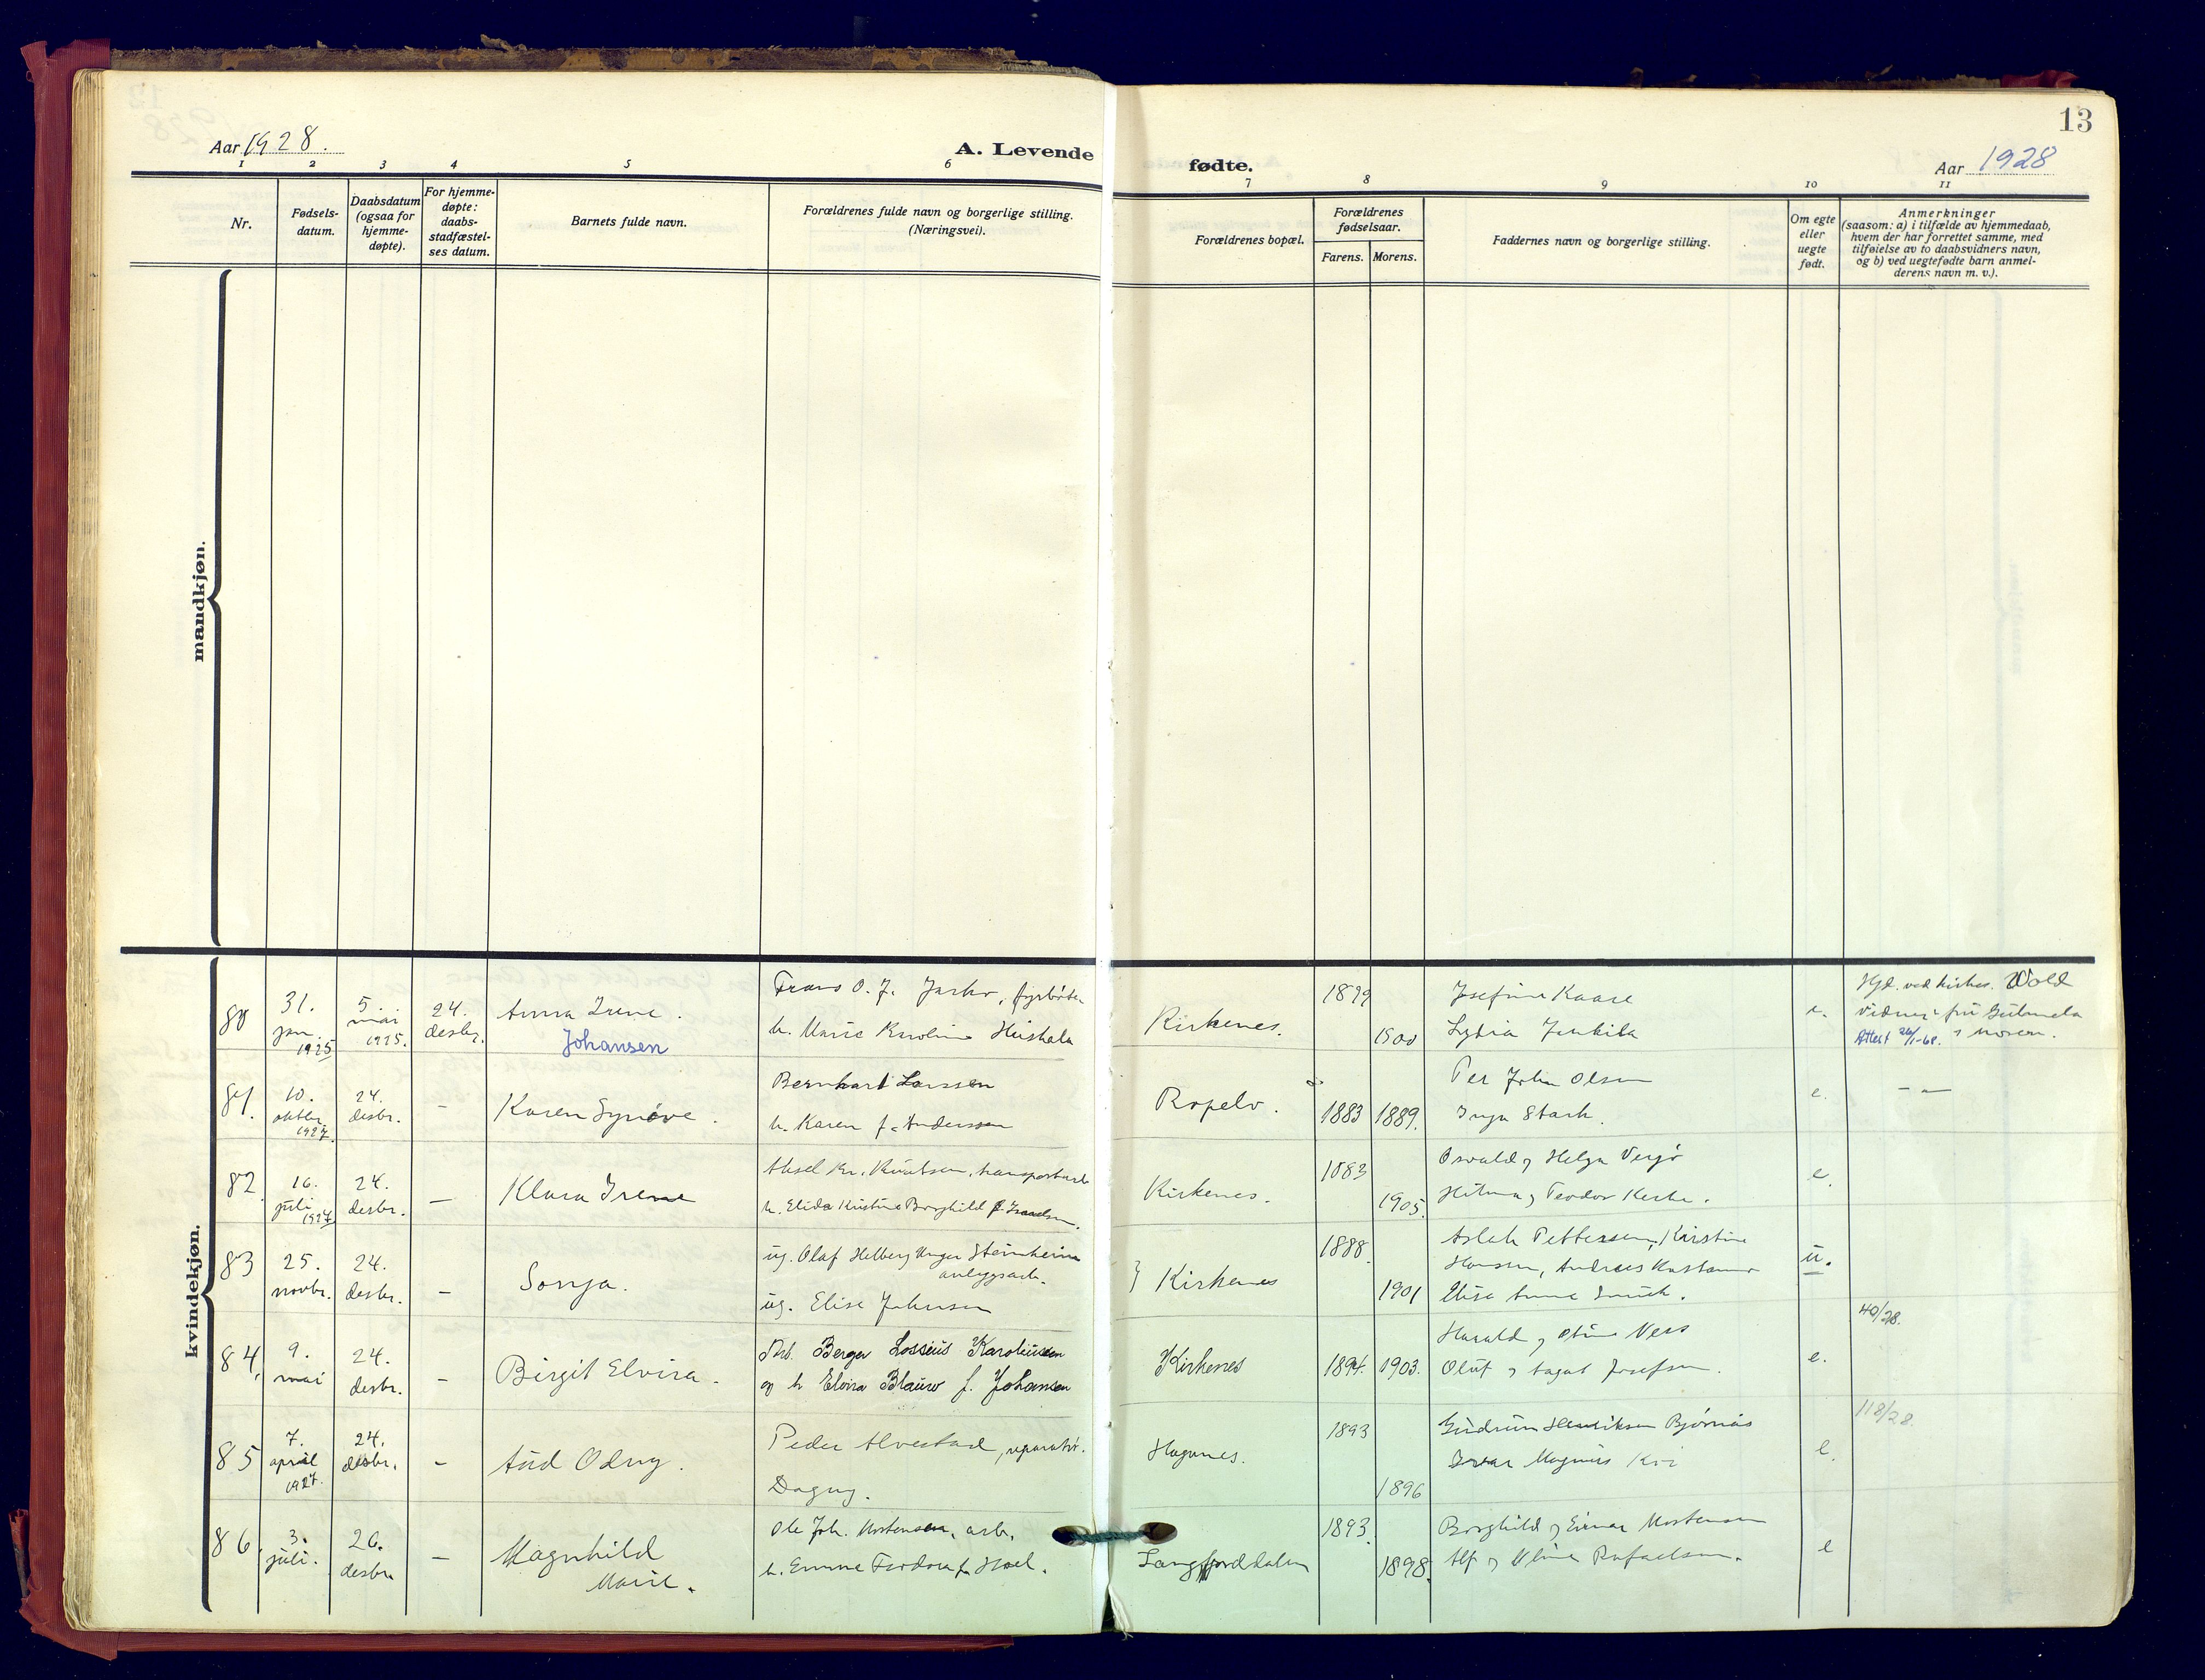 13
Aar 1928.
A. Levende
fødte.
Aar 1928
1 2 3 4 5 6 7 8 9 10 11
Nr.
Fødsels-
datum.
Daabsdatum
(ogsaa for
hjemme-
døpte).
For hjemme-
døpte:
daabs-
stadfæstel-
ses datum.
Barnets fulde navn.
Forældrenes fulde navn og borgerlige stilling.
(Næringsvei).
Forældrenes bopæl.
Forældrenes
fødselsaar.
Farens. Morens.
Faddernes navn og borgerlige stilling.
Om egte
eller
uegte
født.
Anmerkninger
(saasom: a) i tilfælde av hjemmedaab,
hvem der har forrettet samme, med
tilføielse av to daabsvidners navn,
og b) ved uegtefødte barn anmel-
derens navn m. v.).
mandkjøn.
kvindekjøn.
80
31.
jan.
1925
5
mai
1925.
24.
desbr.
Anna Irene.
Johansen
Frans O. J.
h. Marie Karoline
Kirkenes.
1899
1900
Josefine Kaare
Lydia
e.
Hjd. ved kirkes. Wold
Vidner: fru
Attest 26/1-68. & moren.
81.
10.
oktbr.
1927.
24.
desbr.
-
Karen Synöve.
Bernhart Larssen
h. Karen f. Anderssen
Ropelv.
1883 1889.
Per Johan Olsen
Inga Stark.
e.
- -
82.
16.
juli
1927
24.
desbr.
-
Klara Irene
Aksel Kr. Knutsen, transportarb
h. Elida Kristine Borghild f. Israelsen.
Kirkenes.
1883
1905.
Osvald og Helga
Hilma og Teodor
e.
83
25.
novbr.
24.
desbr.
-
Sonja.
ug. Olaf Helberg Unger Steinheim
anlegsarb.
ug. Elise Johnsen
Kirkenes
1888.
1901
Aslak Pettersen, Kirstine
Hansen, Andreas
Elise Anna
u.
84.
9.
mai
24.
desbr.
-
Birgit Elvira.
Arb. Berger Lossius Karoliussen
og h Elvira Blauw f. Johansen
Kirkenes
1894. 1903.
Harald og
Oluf og Aagot Josefsen.
e.
40/28.
85
7.
april
1927.
24.
desbr.
-
Aud Odny.
Peder Alvestad,
Dagny.
Haganes.
1893
1896
Gudrun Henriksen Bjørnås
Ivar Magnus
e.
118/28.
86.
3.
juli.
26.
desbr.
-
Magnhild
Marie.
Ole Joh. Mortensen, arb.
h. Emme Feodora f. Hoel.
Langfjorddalen
1893.
1898.
Borghild og Einar Mortensen
Alf og Rafaelsen.
e